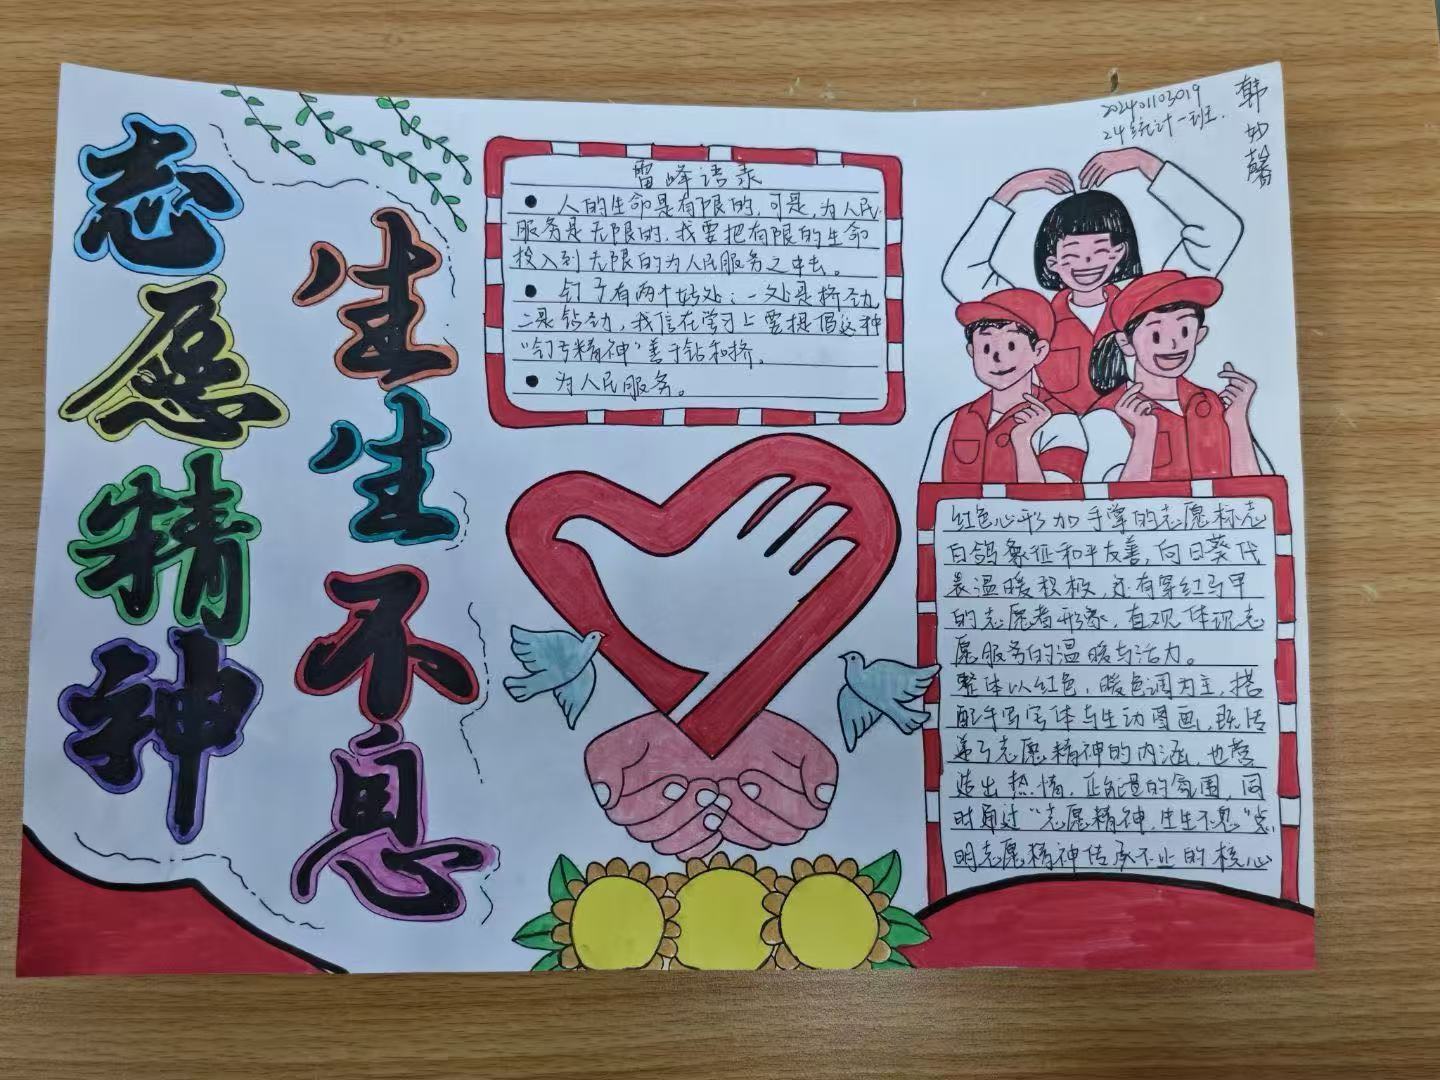 志愿精神
生生不息
雷峰语录
● 人的生命是有限的,可是,为人民
服务是无限的,我要把有限的生命
投入到无限的为人民服务之中去。
● 钉子有两个好处:一处是挤劲
二是钻劲,我信在学习上要提倡这种
“钉子精神”善于钻和挤。
● 为人民服务。
202401103019
24统计一班.
韩妙馨
红色心形加手掌的志愿标志
白鸽象征和平友善,向日葵代
表温暖积极,还有穿红马甲
的志愿者形象,直观体现志
愿服务的温暖与活力。
整体以红色,暖色调为主,搭
配手写字体与生动图画,既传
递了志愿精神的内涵,也营
造出热情,正能量的氛围,同
时通过“志愿精神,生生不息”点
明志愿精神传承不止的核心